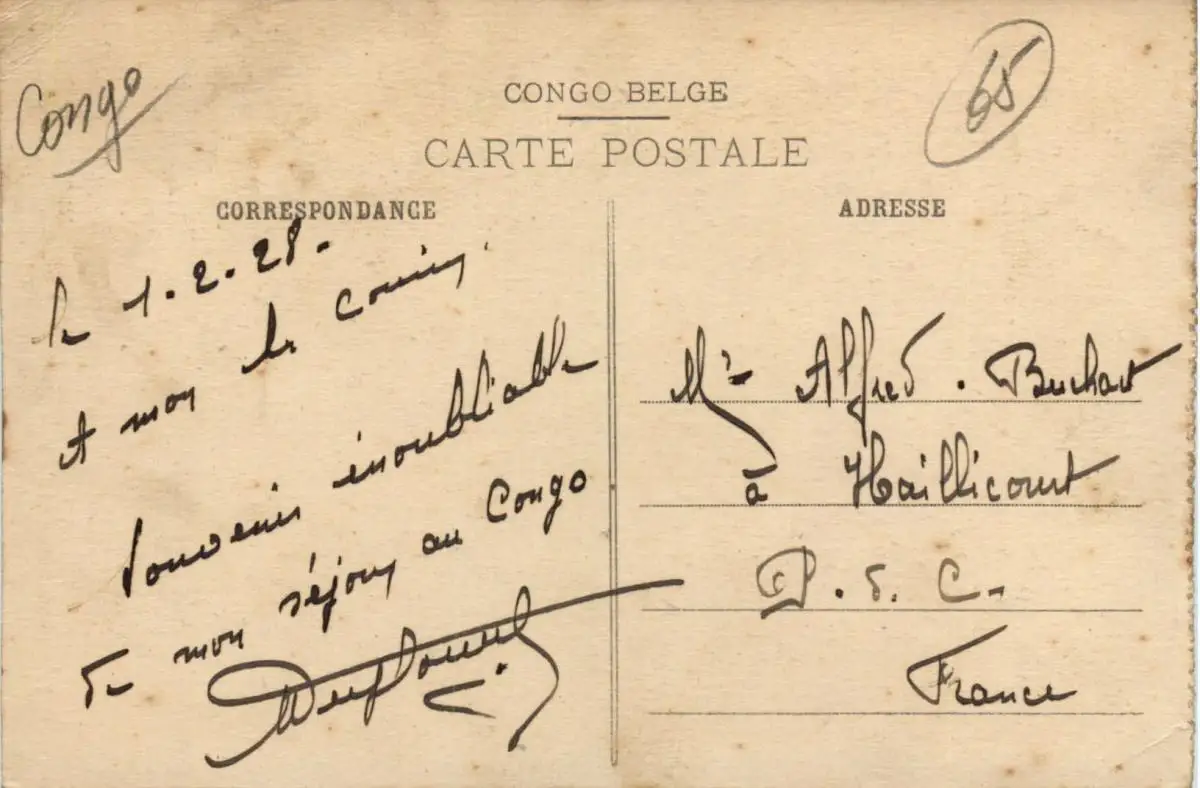 Congo
65
CONGO BELGE
CARTE POSTALE
CORRESPONDANCE
le 1.2.28.
A mon cousin,
Souvenir inoubliable
de mon séjour au Congo
ADRESSE
Mr Alfred. Buchart
à Haillicourt
P. d. C.
France